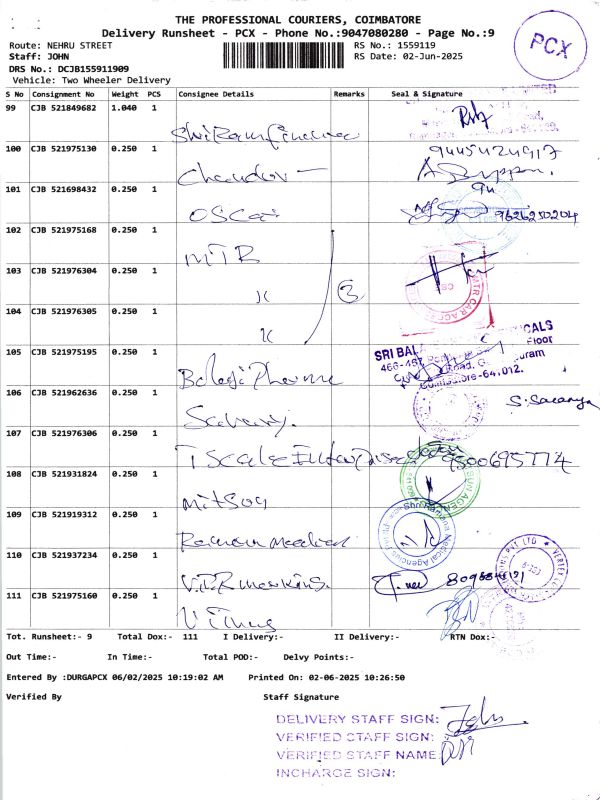 THE PROFESSIONAL COURIERS, COIMBATORE
Delivery Runsheet - PCX - Phone No.:9047080280 - Page No.:9
PCX
Route: NEHRU STREET
RS No.: 1559119
Staff: JOHN
RS Date: 02-Jun-2025
DRS No.: DCJB155911909
Vehicle: Two Wheeler Delivery
S No Consignment No Weight PCS Consignee Details Remarks Seal & Signature
99 CJB 521849682 1.040 1
Shri Ram finance
100 CJB 521975130 0.250 1 9445424917
Chandar
101 CJB 521698432 0.250 1
Oscar 9626250204
102 CJB 521975168 0.250 1
MTR
103 CJB 521976304 0.250 1
3
104 CJB 521976305 0.250 1
105 CJB 521975195 0.250 1
SRI BALA
CALS
Floor
Road, G
uram
Coimbatore-641,012.
Balaji Pharma
106 CJB 521962636 0.250 1 S. Saranya
107 CJB 521976306 0.250 1
T Scale Enterprises 9500695774
108 CJB 521931824 0.250 1
Mitson
109 CJB 521919312 0.250 1
Raman medical
110 CJB 521937234 0.250 1
111 CJB 521975160 0.250 1
Tot. Runsheet:- 9 Total Dox:- 111 I Delivery:- II Delivery:- RTN Dox:-
Out Time:- In Time:- Total POD:- Delvy Points:-
Entered By :DURGAPCX 06/02/2025 10:19:02 AM Printed On: 02-06-2025 10:26:50
Verified By Staff Signature
DELIVERY STAFF SIGN:
VERIFIED STAFF SIGN:
VERIFIED STAFF NAME:
INCHARGE SIGN: